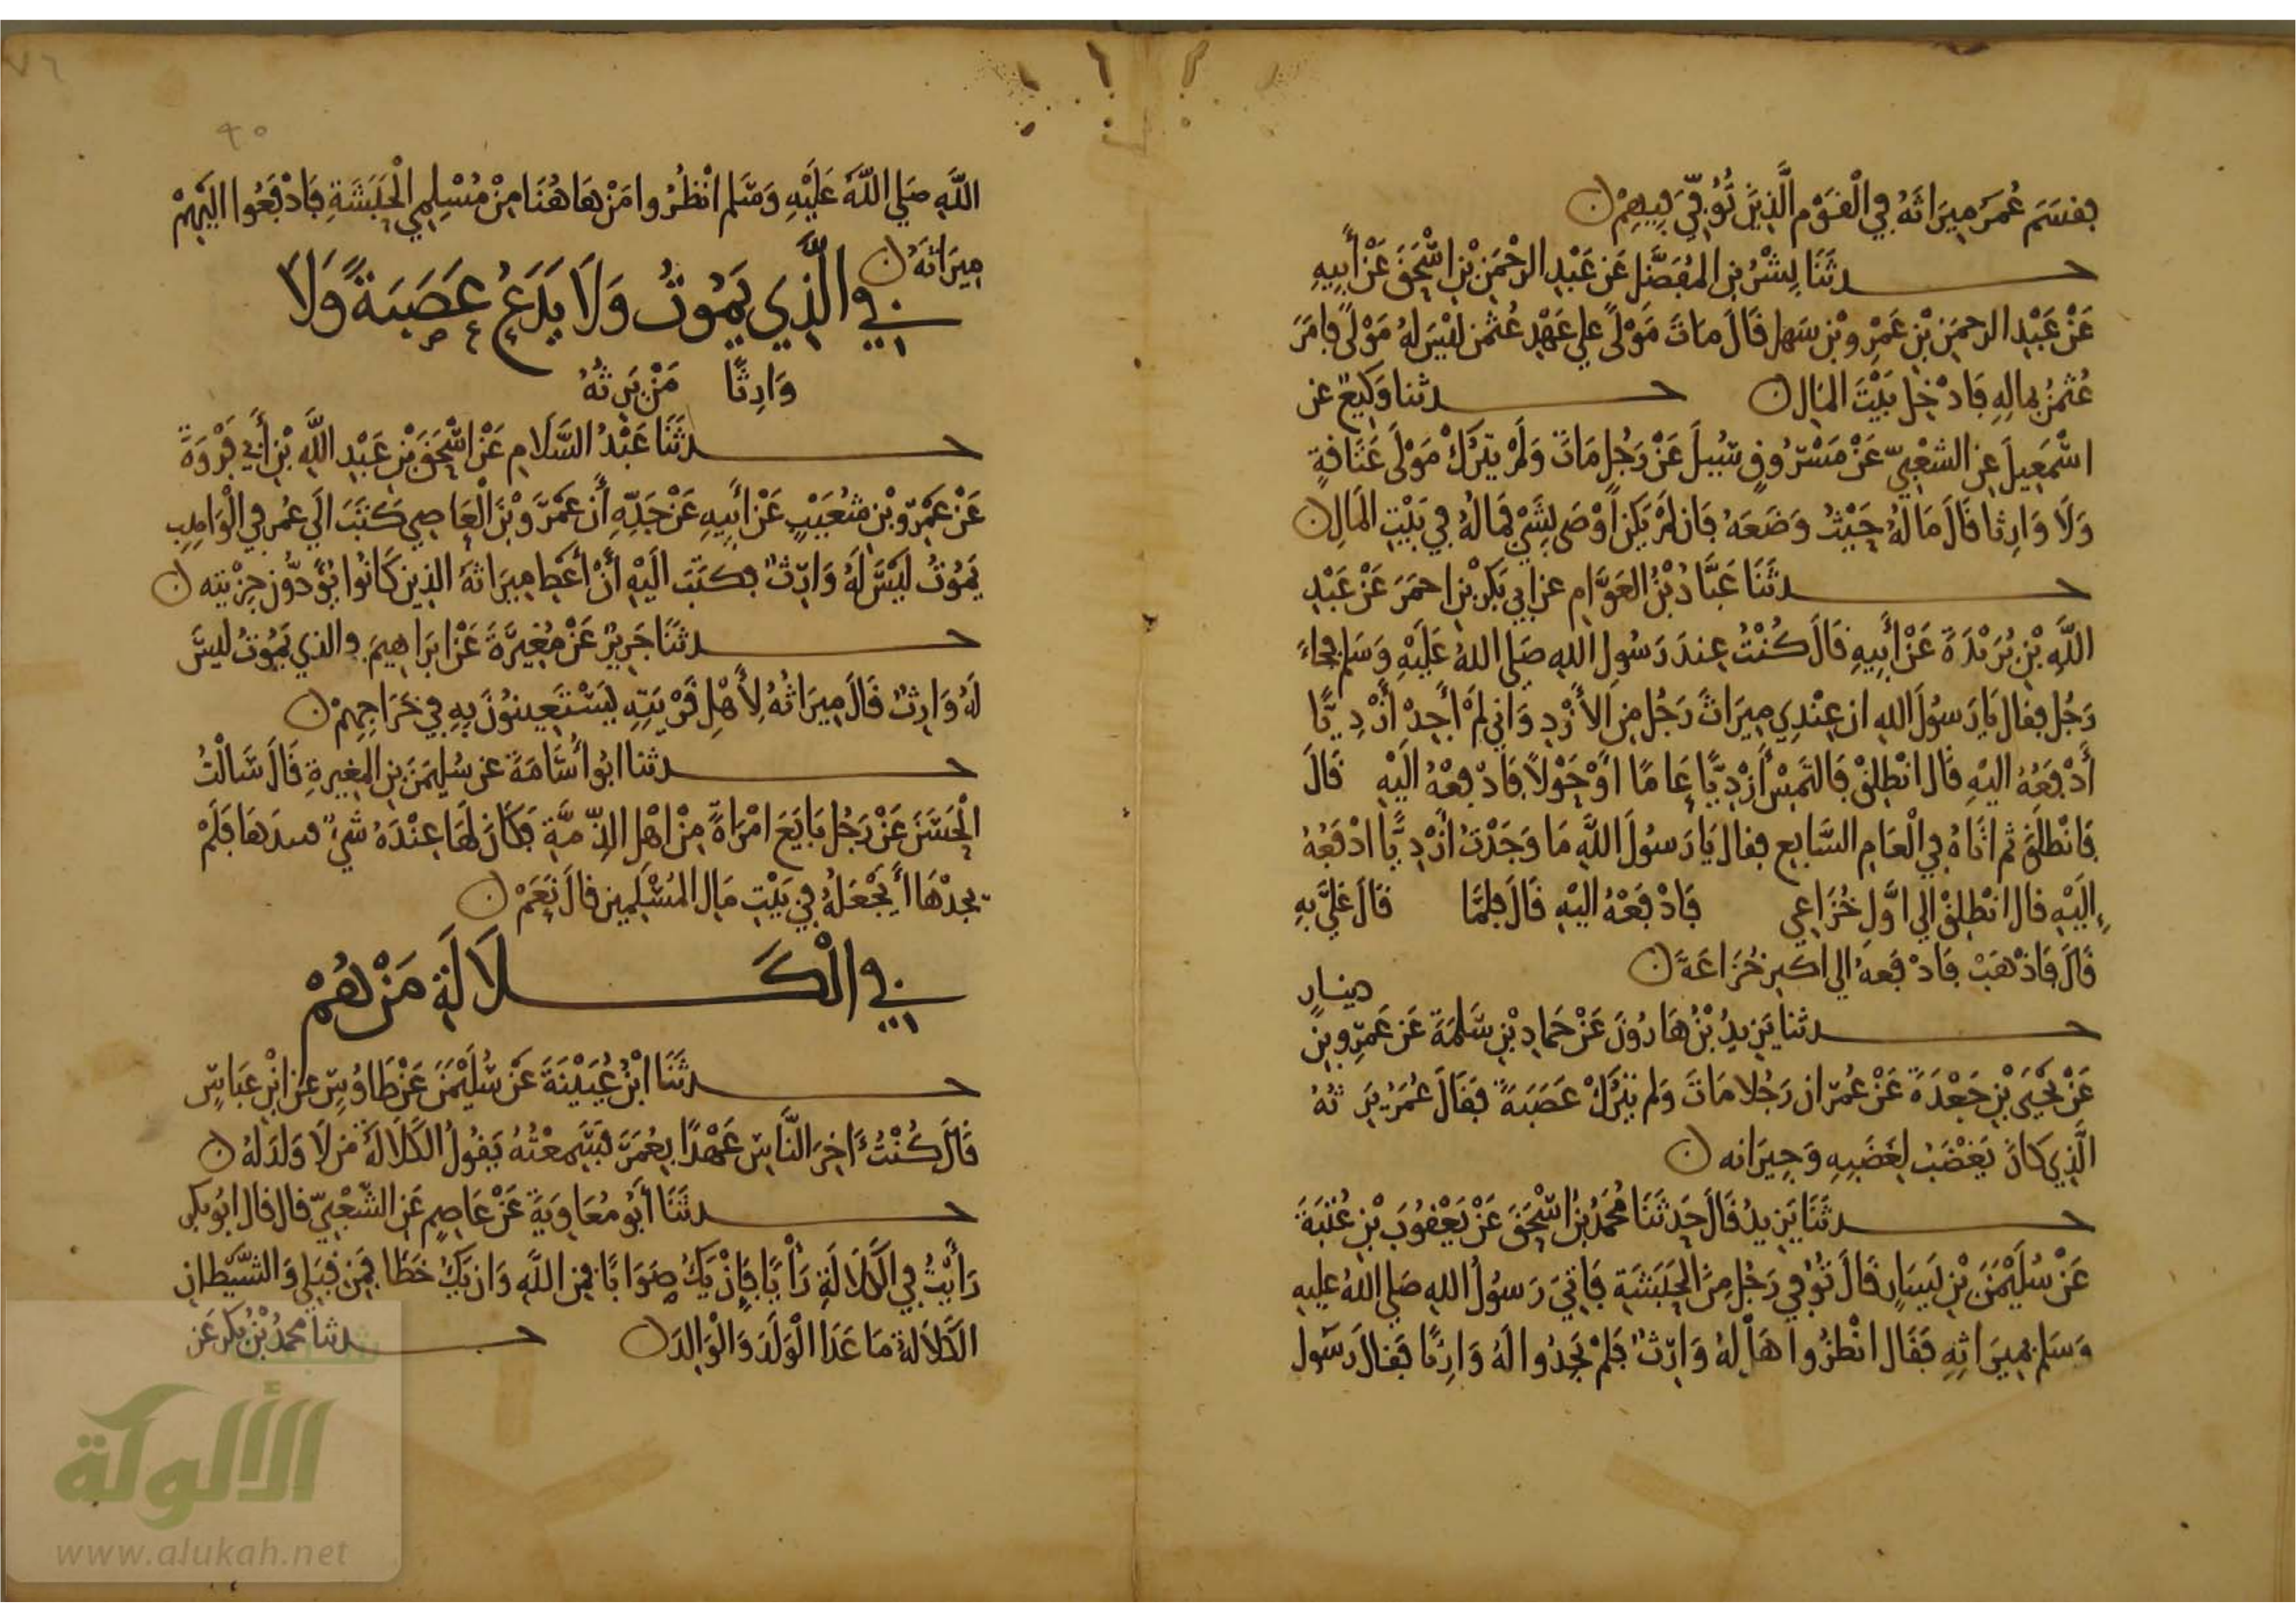 فقسم عمر ميراثه في القوم الذين توفي فيهم
حدثنا بشر بن المفضل عن عبد الرحمن بن اسحق عن أبيه
عن عبد الرحمن بن عمرو بن سهل قال مات مولى علي عهد عثمن ليس له مولى فامر
عثمن بماله فادخل بيت المال حدثنا وكيع عن
اسمعيل عن الشعبي عن مسروق سيل عن رجل مات ولم يترك مولى عتاقة
ولا وارثا قال ماله حيث وضعه فان لم يكن أوصى بشي فماله في بيت المال
حدثنا عباد بن العوام عن ابي بكر بن احمر عن عبد
الله بن بريدة عن أبيه قال كنت عند رسول الله صلى الله عليه وسلم فجاء
رجل فقال يا رسول الله ان عندي ميراث رجل من الأزد واني لم أجد أزديا
أدفعه اليه قال انطلق فالتمس أزديا عاما او حولا فادفعه اليه قال
فانطلق ثم اتاه في العام السابع فقال يا رسول الله ما وجدت أزديا ادفعه
إليه قال انطلق الي اول خزاعي فادفعه اليه قال فلما قال علي به
قال فاذهب فادفعه الي اكبر خزاعة
دينار
حدثنا يزيد بن هارون عن حماد بن سلمة عن عمرو بن
عن يحيى بن جعدة عن عمر ان رجلا مات ولم يترك عصبة فقال عمر يرثه
الذي كان يغضب لغضبه وجيرانه
حدثنا يزيد قال حدثنا محمد بن اسحق عن يعقوب بن عتبة
عن سليمن بن يسار قال توفي رجل من الحبشة فاتي رسول الله صلي الله عليه
وسلم بميراثه فقال انظروا هل له وارث فلم يجدوا له وارثا فقال رسول
٧٦
٩٠
الله صلي الله عليه وسلم انظروا من هاهنا من مسلمي الحبشة فادفعوا اليهم
ميراثه
في الذي يموت ولا يدع عصبة ولا
وارثا من يرثه
حدثنا عبد السلام عن اسحق بن عبد الله بن أبي فروة
عن عمرو بن شعيب عن أبيه عن جده أن عمرو بن العاصي كتب الي عمر في
يموت ليس له وارث فكتب اليه أن أعط ميراثه الذين كانوا يؤدون جزيته
حدثنا جرير عن مغيرة عن ابراهيم في الذي يموت ليس
له وارث قال ميراثه لأهل قريته يستعينون به في خراجهم
حدثنا ابو أسامة عن سليمن بن المغيرة قال سألت
الحسن عن رجل بايع امرأة من اهل الذمة فكان لها عنده شي فلم
يجدها أيجعله في بيت مال المسلمين قال نعم
في الكلالة من هم
حدثنا ابن عيينة عن سليمن عن طاوس عن ابن عباس
قال كنت ءاخر الناس عهدا بعمر فسمعته يقول الكلالة من لا ولد له
حدثنا أبو معاوية عن عاصم عن الشعبي قال قال ابو بكر
رأيت في الكلالة رأيا فإن يك صوابا فمن الله وان يك خطا فمن قبلي والشيطان
الكلالة ما عدا الولد والوالد حدثنا محمد بن بكر عن
شبكة
الألوكة
www.alukah.net